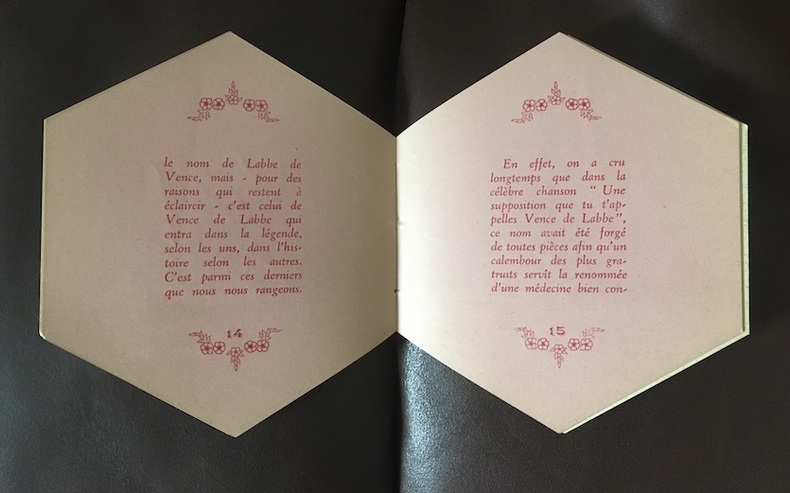 le nom de Labbe de
Vence, mais - pour des
raisons qui restent à
éclaircir - c'est celui de
Vence de Labbe qui
entra dans la légende,
selon les uns, dans l'his-
toire selon les autres.
C'est parmi ces derniers
que nous nous rangeons.
14
En effet, on a cru
longtemps que dans la
célèbre chanson " Une
supposition que tu t'ap-
pelles Vence de Labbe",
ce nom avait été forgé
de toutes pièces afin qu'un
calembour des plus gra-
truits servît la renommée
d'une médecine bien con-
15